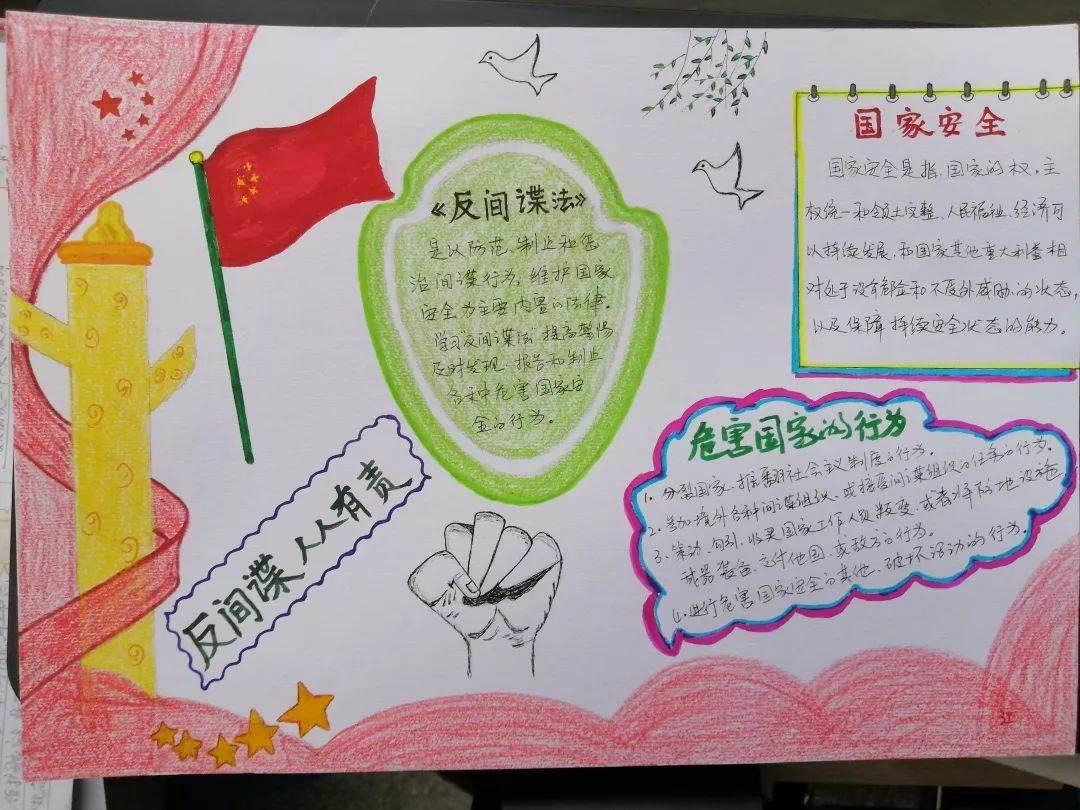 《反间谍法》
是以防范、制止和惩
治间谍行为，维护国家
安全为主要内置的法律。
学习"反间谍法"提高警惕
及时发现、报告和制止
各种危害国家安
全的行为。
反间谍 人人有责
国家安全
国家安全是指国家的权，主
权统一和领土完整、人民福祉、经济可
以持续发展、和国家其他重大利益相
对处于没有危险和不受外威胁的状态，
以及保障持续安全状态的能力。
危害国家的行为
1. 分裂国家、推翻社会主义制度的行为。
2. 参加境外各种间谍组织、或接受间谍组织的任务的行为。
3、策动、勾引、收买国家工作人员叛变、或者将防地设施
武器装备交付他国或敌方的行为。
4.进行危害国家安全的其他、破坏活动的行为。
江